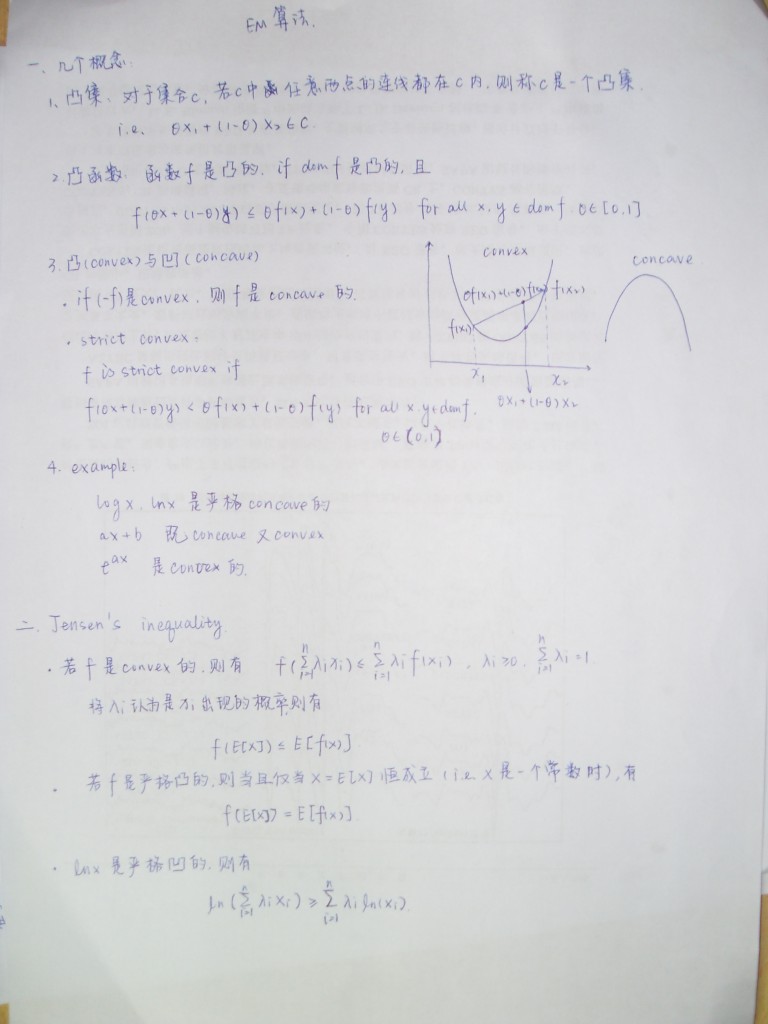 EM 算法.
一、几个概念:
1、凸集、对于集合C，若C中任意两点的连线都在C内，则称C是一个凸集.
i.e. θx₁+(1-θ)x₂∈C.
2.凸函数: 函数f是凸的, if dom f 是凸的, 且
f(θx+(1-θ)y) ≤ θf(x)+(1-θ)f(y) for all x,y∈dom f θ∈[0,1]
3.凸(convex)与凹(concave)
· if (-f)是convex, 则f是concave的.
· strict convex:
f is strict convex if
f(θx+(1-θ)y) < θf(x)+(1-θ)f(y) for all x,y∈dom f.
θ∈(0,1)
convex
θf(x₁)+(1-θ)f(x₂)
f(x₂)
f(x₁)
x₁
x₂
θx₁+(1-θ)x₂
concave
4. example:
log x, ln x 是严格concave的
ax+b 既concave又convex
e^ax 是convex的.
二. Jensen's inequality.
· 若f是convex的,则有 f(∑ᵢ₌₁ⁿ λᵢxᵢ) ≤ ∑ᵢ₌₁ⁿ λᵢf(xᵢ), λᵢ≥0, ∑ᵢ₌₁ⁿ λᵢ=1
将λᵢ认为是xᵢ出现的概率,则有
f(E[x]) ≤ E[f(x)]
· 若f是严格凸的,则当且仅当 x=E[x] 恒成立 (i.e x是一个常数时), 有
f(E[x]) = E[f(x)]
· ln x 是严格凹的,则有
ln(∑ᵢ₌₁ⁿ λᵢxᵢ) ≥ ∑ᵢ₌₁ⁿ λᵢ ln(xᵢ)